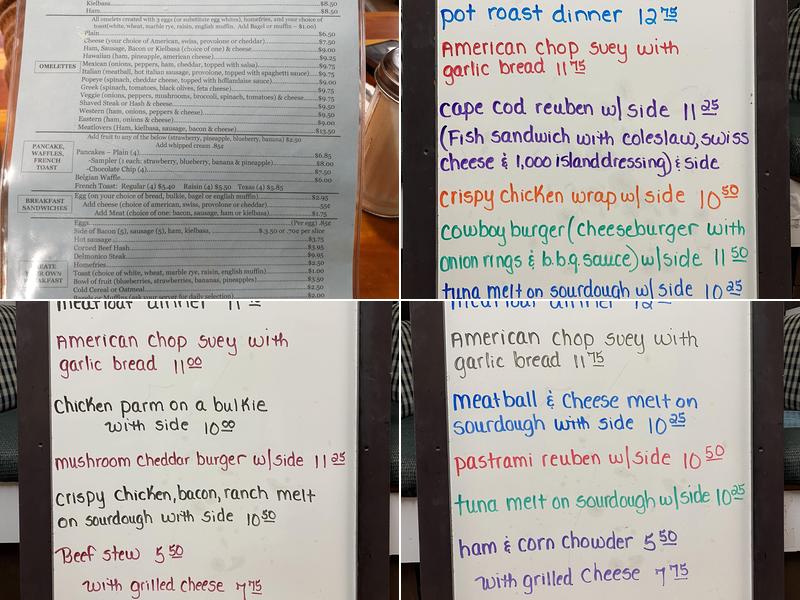 Kielbasa $8.50
Ham $8.50
All omelets created with 3 eggs (or substitute egg whites), homefries, and your choice of
toast(white, wheat, marble rye, raisin, english muffin). Add Bagel or muffin – $1.00)
OMELETTES
Plain $6.50
Cheese (your choice of American, swiss, provolone or cheddar) $7.50
Ham, Sausage, Bacon or Kielbasa (choice of one) & cheese $9.00
Hawaiian (ham, pineapple, american cheese) $9.25
Mexican (onions, peppers, ham, cheddar, topped with salsa) $9.75
Italian (meatball, hot italian sausage, provolone, topped with spaghetti sauce) $9.75
Popeye (spinach, cheddar cheese, topped with hollandaise sauce) $9.00
Greek (spinach, tomatoes, black olives, feta cheese) $9.75
Veggie (onions, peppers, mushrooms, broccoli, spinach, tomatoes) & cheese $9.75
Shaved Steak or Hash & cheese $9.50
Western (ham, onions, peppers & cheese) $9.50
Eastern (ham, onions & cheese) $9.00
Meatlovers (Ham, kielbasa, sausage, bacon & cheese) $13.50
PANCAKE,
WAFFLES,
FRENCH
TOAST
Add fruit to any of the below (strawberry, pineapple, blueberry, banana) $2.50
Add whipped cream .85¢
Pancakes – Plain (4) $6.85
-Sampler (1 each: strawberry, blueberry, banana & pineapple) $8.00
-Chocolate Chip (4) $7.50
Belgian Waffle $6.00
French Toast: Regular (4) $5.40 Raisin (4) $5.50 Texas (4) $5.85
BREAKFAST
SANDWICHES
Egg (on your choice of bread, bulkie, bagel or english muffin) $2.95
Add cheese (choice of american, swiss, provolone or cheddar) .55¢
Add Meat (choice of one: bacon, sausage, ham or kielbasa) $1.75
Eggs (Per egg) .85¢
Side of Bacon (5), sausage (5), ham, kielbasa, $3.50 or .70¢ per slice
Hot sausage $3.75
Corned Beef Hash $3.95
Delmonico Steak $9.95
Homefries $2.50
Toast (choice of white, wheat, marble rye, raisin, english muffin) $1.00
Bowl of fruit (blueberries, strawberries, bananas, pineapple) $3.50
Cold Cereal or Oatmeal $2.50
$2.00
pot roast dinner 12 75
American chop suey with
garlic bread 11 75
cape cod reuben w/ side 11 25
(Fish sandwich with coleslaw, swiss
cheese & 1,000 island dressing) & side
crispy chicken wrap w/ side 10 50
cowboy burger (cheeseburger with
onion rings & b.b.q. sauce) w/ side 11 50
tuna melt on sourdough w/ side 10 25
meatloaf dinner 11
American chop suey with
garlic bread 11 00
Chicken parm on a bulkie
with side 10 00
mushroom cheddar burger w/side 11 25
crispy chicken, bacon, ranch melt
on sourdough with side 10 50
Beef stew 5 50
with grilled cheese 7 75
meatloaf dinner 12
American chop suey with
garlic bread 11 75
meatball & cheese melt on
sourdough with side 10 25
pastrami reuben w/ side 10 50
tuna melt on sourdough w/side 10 25
ham & corn chowder 5 50
with grilled cheese 7 75